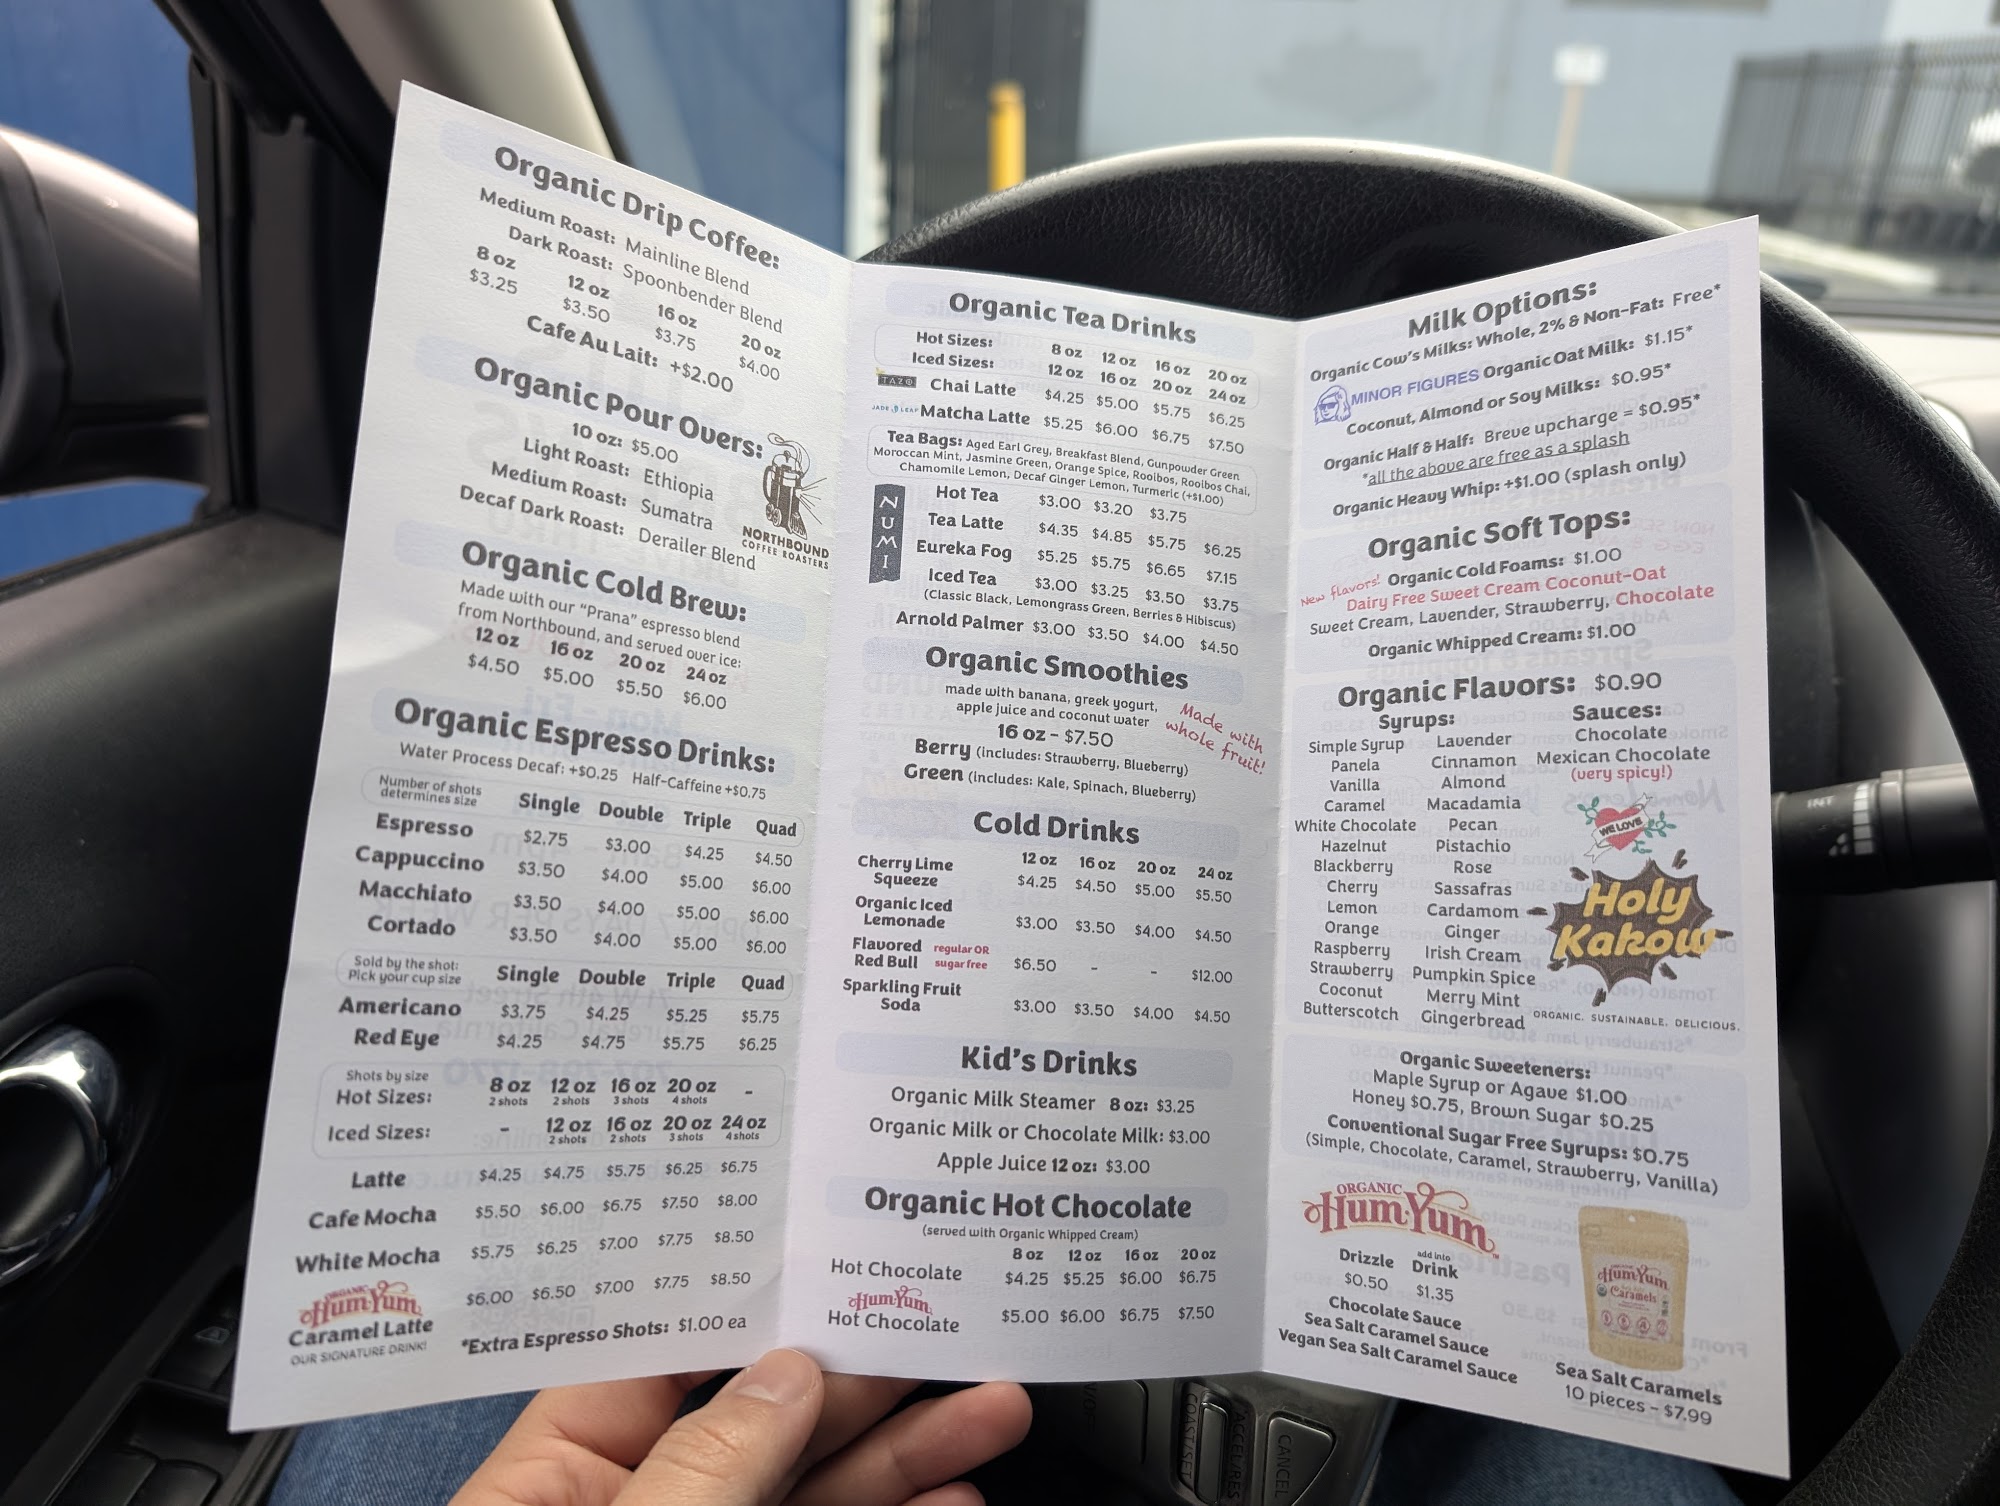 Organic Drip Coffee:
Medium Roast: Mainline Blend
Dark Roast: Spoonbender Blend
8 oz 12 oz 16 oz 20 oz
$3.25 $3.50 $3.75 $4.00
Cafe Au Lait: +$2.00
Organic Pour Overs:
10 oz: $5.00
Light Roast: Ethiopia
Medium Roast: Sumatra
Decaf Dark Roast: Derailer Blend
NORTHBOUND
COFFEE ROASTERS
Organic Cold Brew:
Made with our "Prana" espresso blend
from Northbound, and served over ice:
12 oz 16 oz 20 oz 24 oz
$4.50 $5.00 $5.50 $6.00
Organic Espresso Drinks:
Water Process Decaf: +$0.25 Half-Caffeine +$0.75
Number of shots
determines size
Single Double Triple Quad
Espresso $2.75 $3.00 $4.25 $4.50
Cappuccino $3.50 $4.00 $5.00 $6.00
Macchiato $3.50 $4.00 $5.00 $6.00
Cortado $3.50 $4.00 $5.00 $6.00
Sold by the shot:
Pick your cup size
Single Double Triple Quad
Americano $3.75 $4.25 $5.25 $5.75
Red Eye $4.25 $4.75 $5.75 $6.25
Shots by size
Hot Sizes: 8 oz 12 oz 16 oz 20 oz -
2 shots 2 shots 3 shots 4 shots
Iced Sizes: - 12 oz 16 oz 20 oz 24 oz
2 shots 2 shots 3 shots 4 shots
Latte $4.25 $4.75 $5.75 $6.25 $6.75
Cafe Mocha $5.50 $6.00 $6.75 $7.50 $8.00
White Mocha $5.75 $6.25 $7.00 $7.75 $8.50
ORGANIC
Hum·Yum
Caramel Latte $6.00 $6.50 $7.00 $7.75 $8.50
OUR SIGNATURE DRINK!
*Extra Espresso Shots: $1.00 ea
Organic Tea Drinks
Hot Sizes: 8 oz 12 oz 16 oz 20 oz
Iced Sizes: 12 oz 16 oz 20 oz 24 oz
TAZO Chai Latte $4.25 $5.00 $5.75 $6.25
JADE LEAF Matcha Latte $5.25 $6.00 $6.75 $7.50
Tea Bags: Aged Earl Grey, Breakfast Blend, Gunpowder Green
Moroccan Mint, Jasmine Green, Orange Spice, Rooibos, Rooibos Chai,
Chamomile Lemon, Decaf Ginger Lemon, Turmeric (+$1.00)
NUMI
Hot Tea $3.00 $3.20 $3.75
Tea Latte $4.35 $4.85 $5.75 $6.25
Eureka Fog $5.25 $5.75 $6.65 $7.15
Iced Tea $3.00 $3.25 $3.50 $3.75
(Classic Black, Lemongrass Green, Berries & Hibiscus)
Arnold Palmer $3.00 $3.50 $4.00 $4.50
Organic Smoothies
made with banana, greek yogurt,
apple juice and coconut water
Made with
whole fruit!
16 oz - $7.50
Berry (includes: Strawberry, Blueberry)
Green (includes: Kale, Spinach, Blueberry)
Cold Drinks
12 oz 16 oz 20 oz 24 oz
Cherry Lime
Squeeze $4.25 $4.50 $5.00 $5.50
Organic Iced
Lemonade $3.00 $3.50 $4.00 $4.50
Flavored regular OR
Red Bull sugar free $6.50 - - $12.00
Sparkling Fruit
Soda $3.00 $3.50 $4.00 $4.50
Kid's Drinks
Organic Milk Steamer 8 oz: $3.25
Organic Milk or Chocolate Milk: $3.00
Apple Juice 12 oz: $3.00
Organic Hot Chocolate
(served with Organic Whipped Cream)
8 oz 12 oz 16 oz 20 oz
Hot Chocolate $4.25 $5.25 $6.00 $6.75
Hum·Yum
Hot Chocolate $5.00 $6.00 $6.75 $7.50
Milk Options:
Organic Cow's Milks: Whole, 2% & Non-Fat: Free*
MINOR FIGURES Organic Oat Milk: $1.15*
Coconut, Almond or Soy Milks: $0.95*
Organic Half & Half: Breve upcharge = $0.95*
*all the above are free as a splash
Organic Heavy Whip: +$1.00 (splash only)
Organic Soft Tops:
New flavors! Organic Cold Foams: $1.00
Dairy Free Sweet Cream Coconut-Oat
Sweet Cream, Lavender, Strawberry, Chocolate
Organic Whipped Cream: $1.00
Organic Flavors: $0.90
Syrups:
Simple Syrup Lavender
Panela Cinnamon
Vanilla Almond
Caramel Macadamia
White Chocolate Pecan
Hazelnut Pistachio
Blackberry Rose
Cherry Sassafras
Lemon Cardamom
Orange Ginger
Raspberry Irish Cream
Strawberry Pumpkin Spice
Coconut Merry Mint
Butterscotch Gingerbread
Sauces:
Chocolate
Mexican Chocolate
(very spicy!)
WE LOVE
Holy
Kakow
ORGANIC. SUSTAINABLE. DELICIOUS.
Organic Sweeteners:
Maple Syrup or Agave $1.00
Honey $0.75, Brown Sugar $0.25
Conventional Sugar Free Syrups: $0.75
(Simple, Chocolate, Caramel, Strawberry, Vanilla)
ORGANIC
Hum·Yum
Drizzle add into Drink
$0.50 $1.35
Chocolate Sauce
Sea Salt Caramel Sauce
Vegan Sea Salt Caramel Sauce
Hum·Yum
Caramels
Sea Salt Caramels
10 pieces - $7.99
INT
COAST/SET
ACCEL/RES
CANCEL